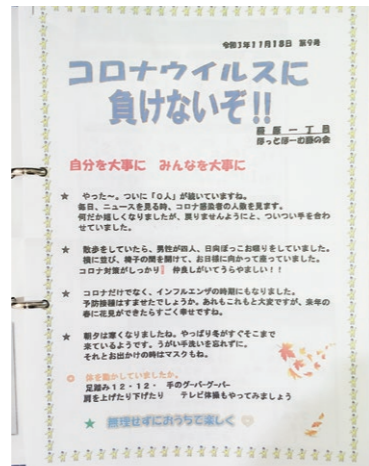 令和3年11月18日 第9号
コロナウイルスに
負けないぞ!!
一丁目
ほっとほーむ
自分を大事に みんなを大事に
★ やった～。ついに「0人」が続いていますね。
毎日、ニュースを見る時、コロナ感染者の人数を見ます。
何だか嬉しくなりましたが、戻りませんようにと、ついつい手を合わ
せていました。
★ 散歩をしていたら、男性が四人、日向ぼっこお喋りをしていました。
横に並び、椅子の間を開けて、お日様に向かって座っていました。
コロナ対策がしっかり! 仲良しがいてうらやましい!!
★ コロナだけでなく、インフルエンザの時期にもなりました。
予防接種はすませたでしょうか。あれもこれもと大変ですが、来年の
春に花見ができたらすごく幸せですね。
★ 朝夕は寒くなりましたね。やっぱり冬がすぐそこまで
来ているようです。うがい手洗いを忘れずに。
それとお出かけの時はマスクもね。
○ 体を動かしていましたか。
足踏み12・12・ 手のグーパーグーパー
肩を上げたり下げたり テレビ体操もやってみましょう
★ 無理せずにおうちで楽しく♡